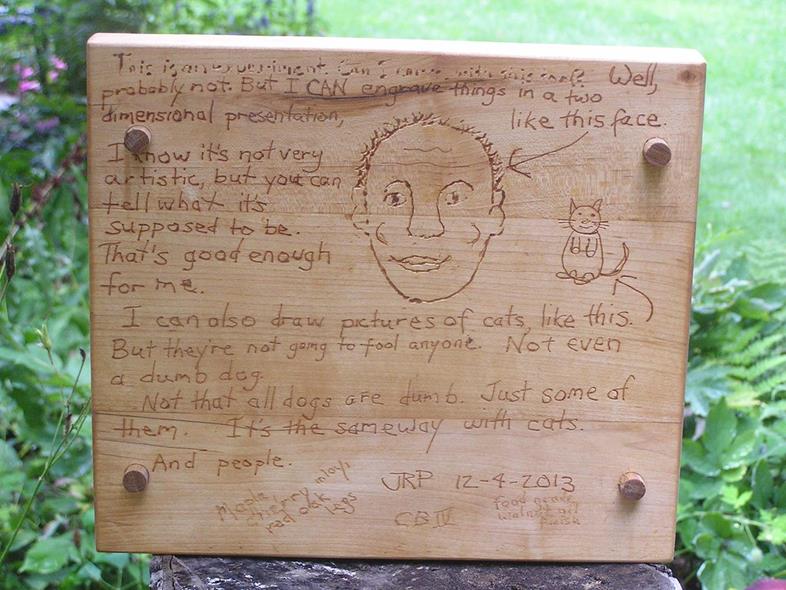 This is an experiment. Can I carve with this knife? Well,
probably not. But I CAN engrave things in a two
dimensional presentation, like this face.
I know it's not very
artistic, but you can
tell what it's
supposed to be.
That's good enough
for me.
I can also draw pictures of cats, like this.
But they're not going to fool anyone. Not even
a dumb dog.
Not that all dogs are dumb. Just some of
them. It's the same way with cats.
And people.
JRP 12-4-2013
CB IV
Maple
cherry inlays
red oak legs
food grade
walnut oil
finish